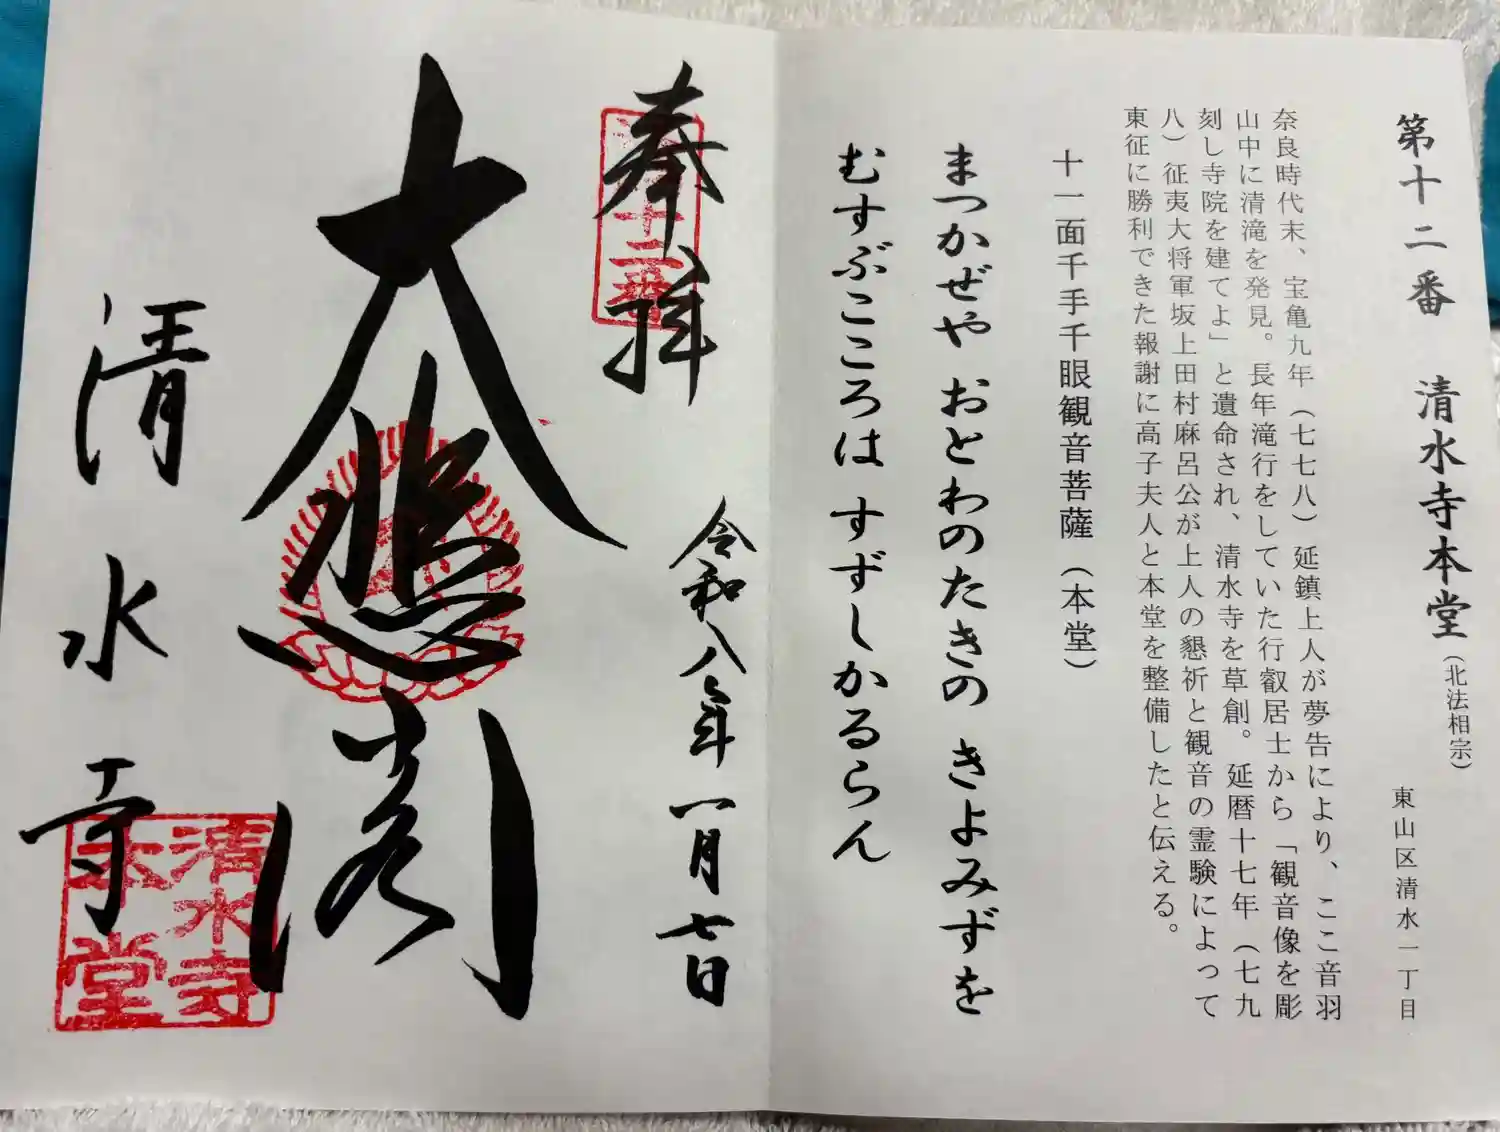 第十二番 清水寺本堂（北法相宗）
東山区清水一丁目
奈良時代末、宝亀九年（七七八）延鎮上人が夢告により、ここ音羽
山中に清滝を発見。長年滝行をしていた行叡居士から「観音像を彫
刻し寺院を建てよ」と遺命され、清水寺を草創。延暦十七年（七九
八）征夷大将軍坂上田村麻呂公が上人の懇祈と観音の霊験によって
東征に勝利できた報謝に高子夫人と本堂を整備したと伝える。
十一面千手千眼観音菩薩（本堂）
まつかぜや おとわのたきの きよみずを
むすぶこころは すずしかるらん
奉拝
十二番
令和八年一月七日
大悲閣
清水寺
清水寺
本堂